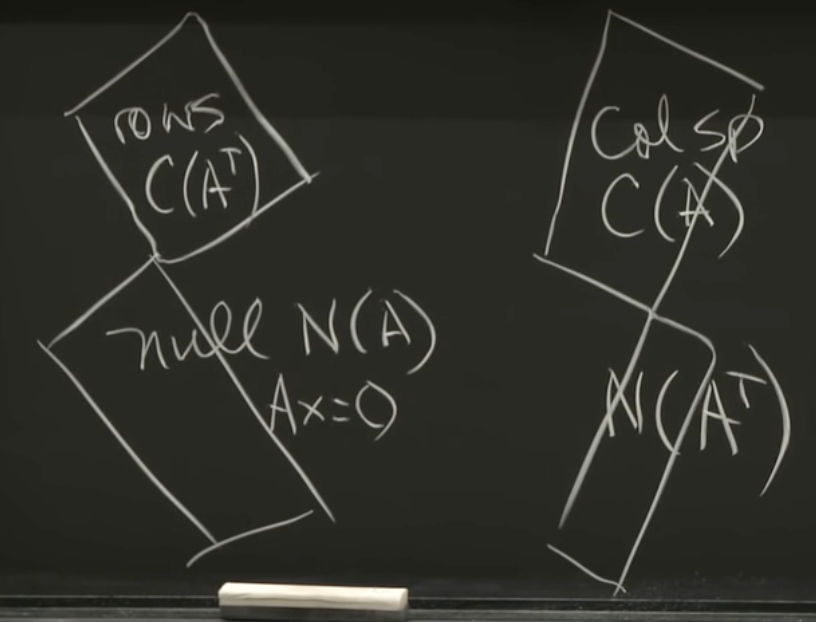 rows
C(Aᵀ)
null N(A)
Ax=0
Col sp
C(A)
N(Aᵀ)